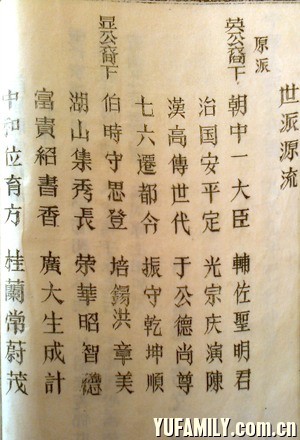 世派源流
原派
英公裔下 朝中一大臣 輔佐聖明君
治国安平定 光宗庆演陳
漢高傳世代 于公德尚尊
七六遷都令 振守乾坤順
显公裔下 伯時守思登 培錫洪章美
湖山集秀長 荣華昭智德
富貴紹書香 廣大生成計
中和位育方 桂蘭常蔚茂
YUFAMILY.com.cn